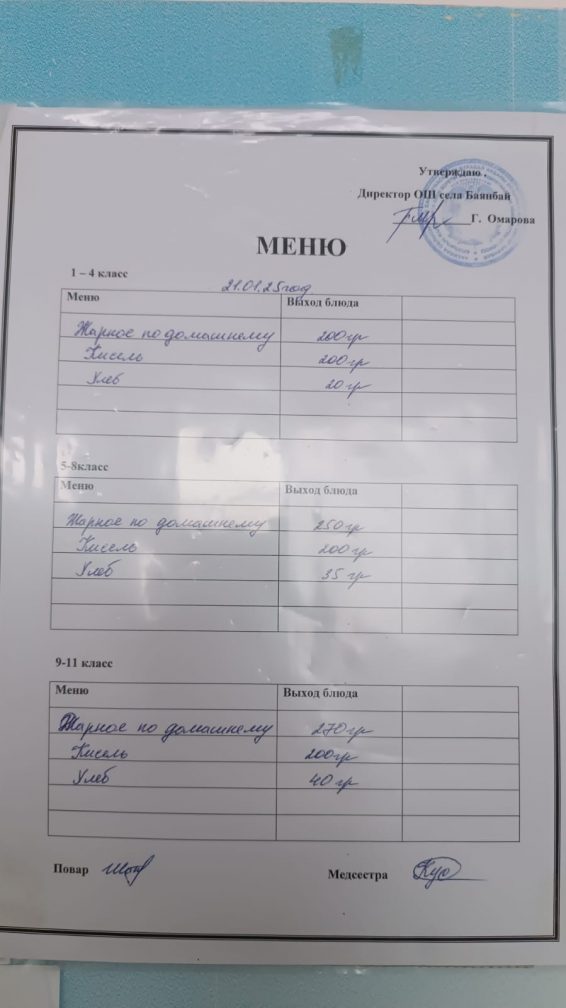 Утверждаю .
Директор ОШ села Баянбай
Г. Омарова
МЕНЮ
1 – 4 класс
21.01.25год
Меню Выход блюда
Жарное по домашнему 200гр
Кисель 200гр
Хлеб 20гр
5-8класс
Меню Выход блюда
Жарное по домашнему 250гр
Кисель 200гр
Хлеб 35 гр
9-11 класс
Меню Выход блюда
Жарное по домашнему 270гр
Кисель 200гр
Хлеб 40 гр
Повар
Медсестра